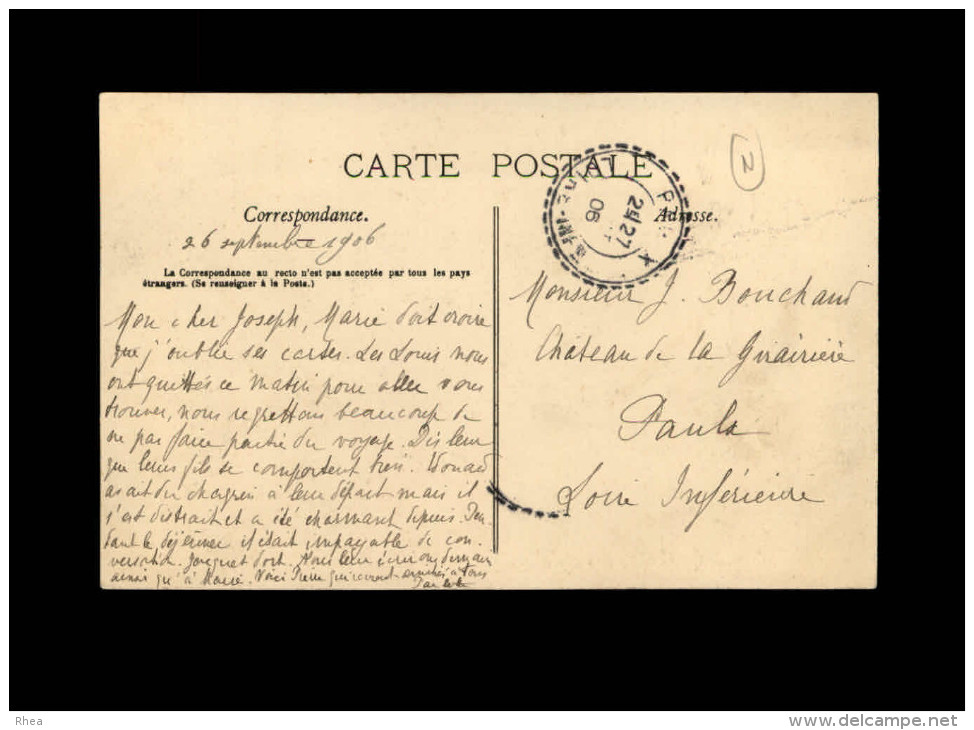 CARTE POSTALE
Correspondance.
Adresse.
26 septembre 1906
La Correspondance au recto n'est pas acceptée par tous les pays
étrangers. (Se renseigner à la Poste.)
Mon cher Joseph, Marie doit croire
que j'oublie ses cartes. Les Louis nous
ont quittés ce matin pour aller vous
trouver, nous regrettons beaucoup de
ne pas faire partie du voyage. Dis leur
que leurs fils se comportent bien. Edouard
avait du chagrin à leur départ mais il
s'est distrait et a été charmant depuis. Pen-
dant le déjeûner il était impayable de con-
versation. Jacquet dort. Nous leur écrirons demain
ainsi qu'à Marie. Voici Pierre qui revient amitiés à tous
Monsieur J. Bouchaud
Château de la Girairière
Paulx
Loire Inférieure
27
06
N
Rhea
www.delcampe.net